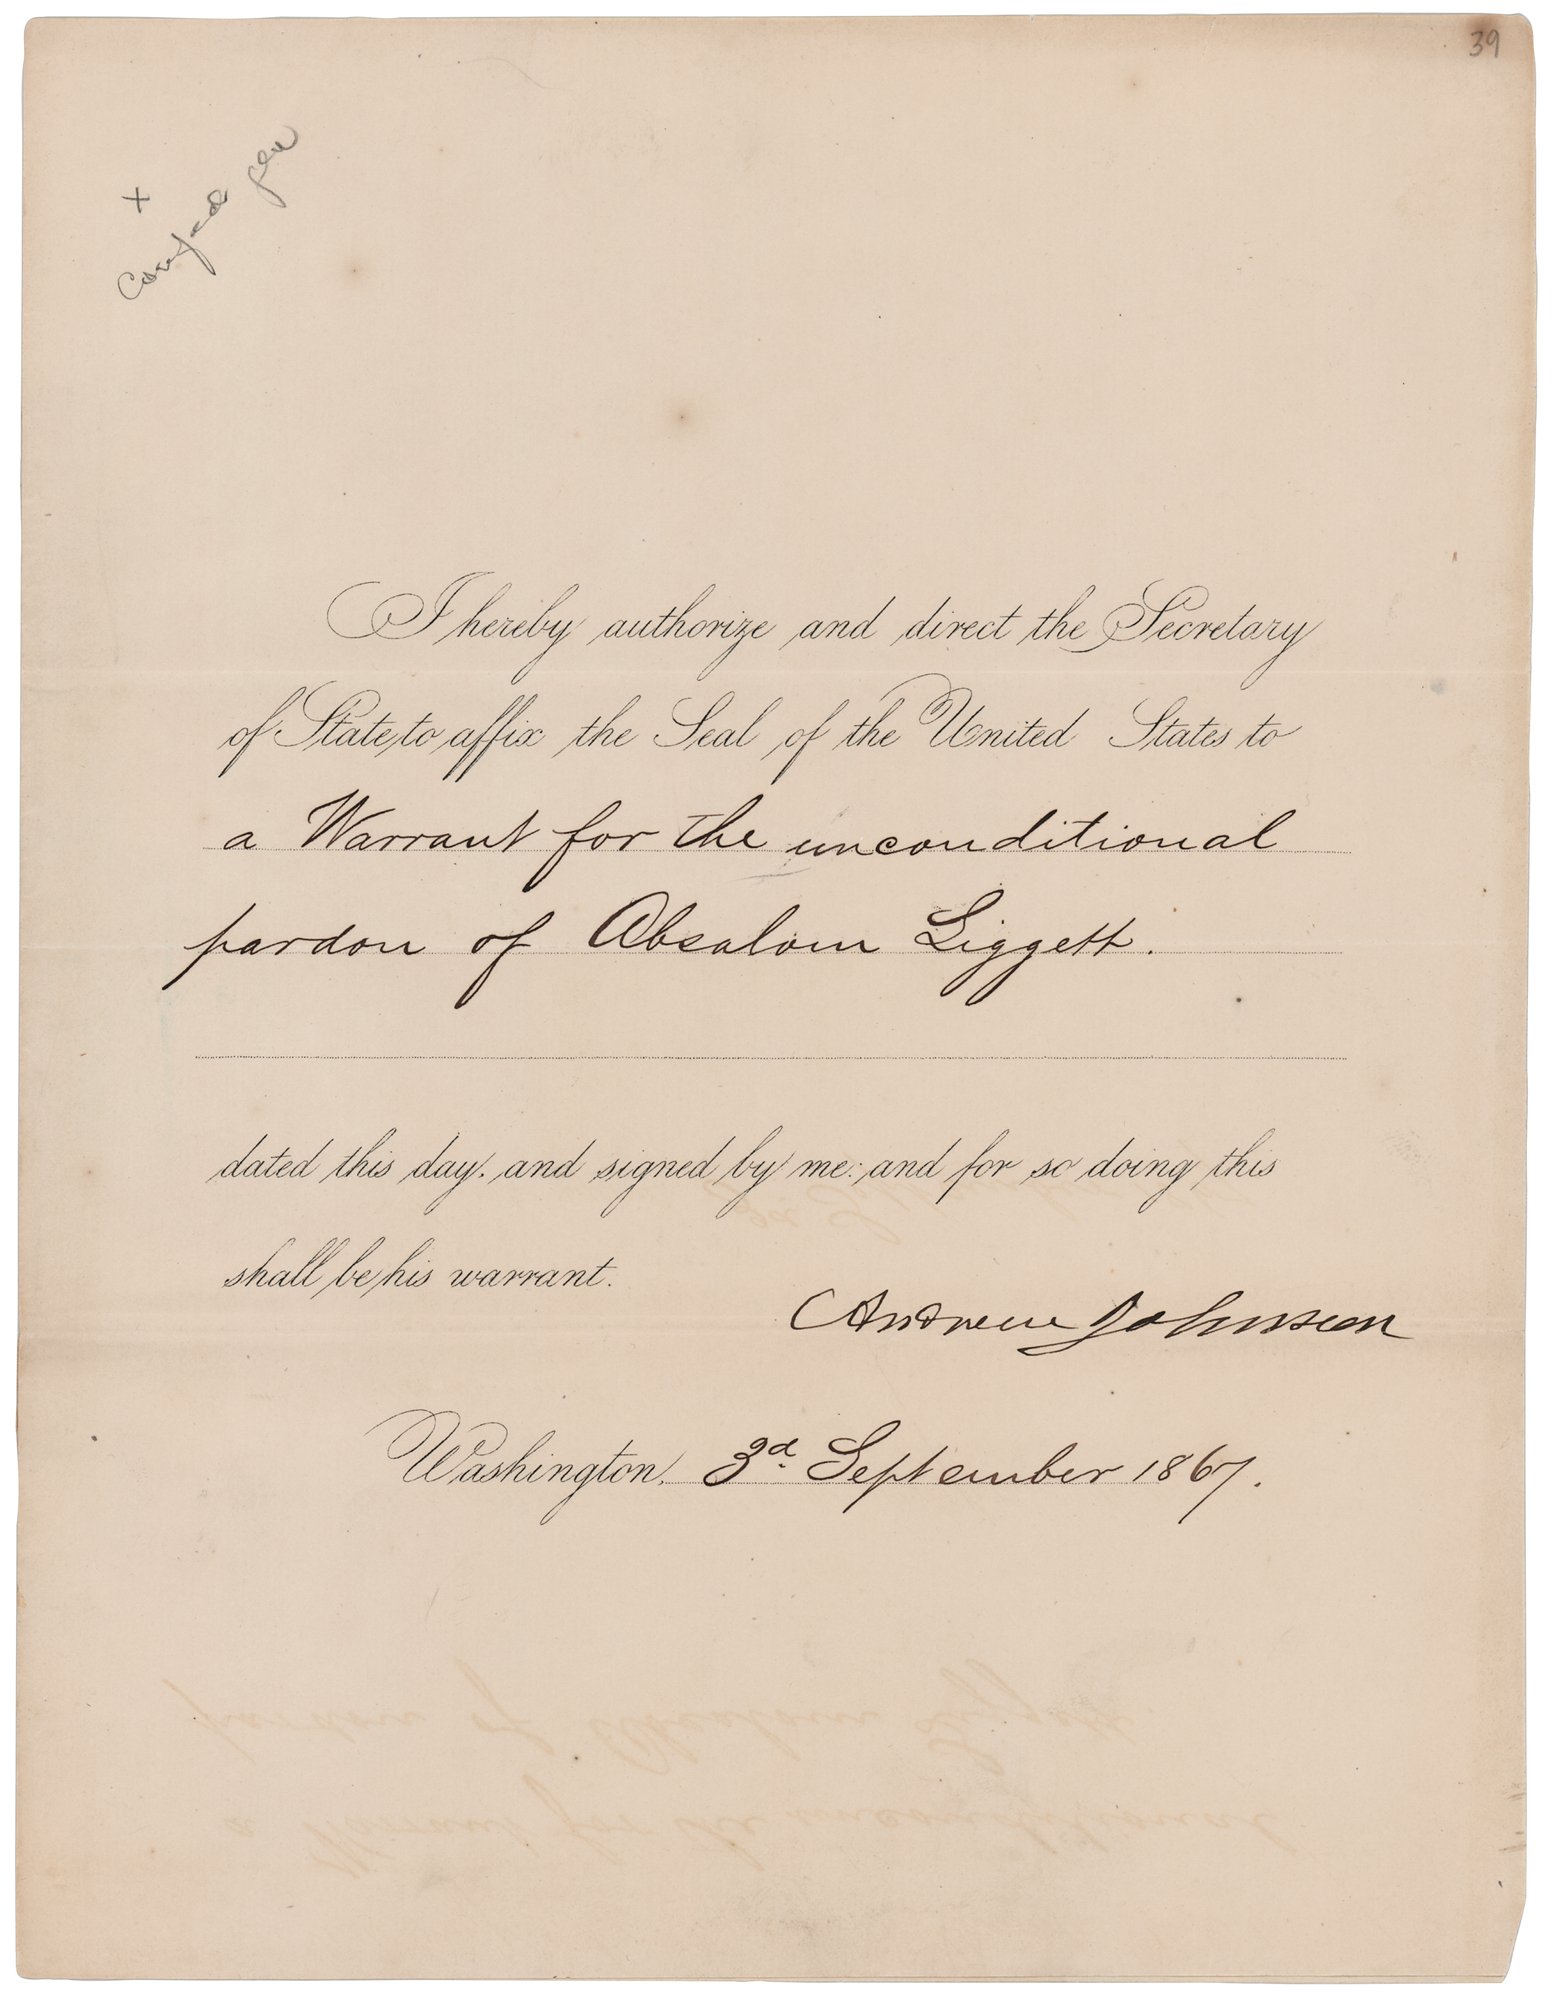 39
+
I hereby authorize and direct the Secretary
of State to affix the Seal of the United States to
a Warrant for the unconditional
pardon of Absalom Liggett.
dated this day. and signed by me: and for so doing this
shall be his warrant.
Andrew Johnson
Washington, 3d. September 1867.